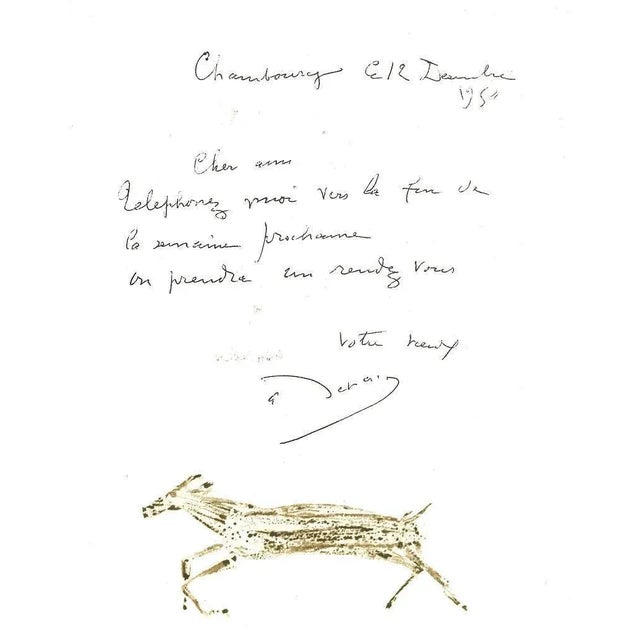 Chambourcy le 12 Decembre
195
Cher ami
Telephonez moi vers la fin de
la semaine prochaine
on prendra un rendez vous
Votre vieux
a Derain